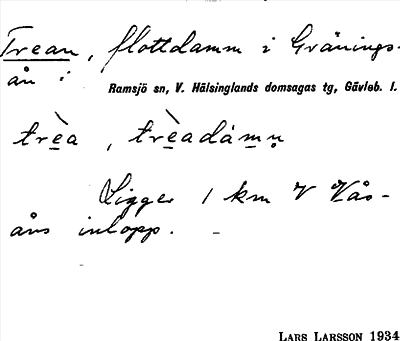 Trean, flottdamm i Gränings-
ån i
Ramsjö sn, V. Hälsinglands domsagas tg, Gävleb. l.
trèa, trèadám̥n
Ligger 1 km V Kås-
åns inlopp. -
LARS LARSSON 1934